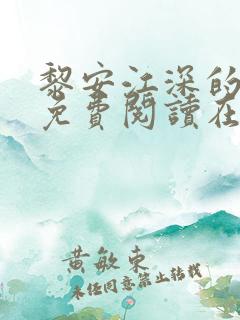 黎安江深的
免費閱讀在
黃敏東
未经同意禁止转载